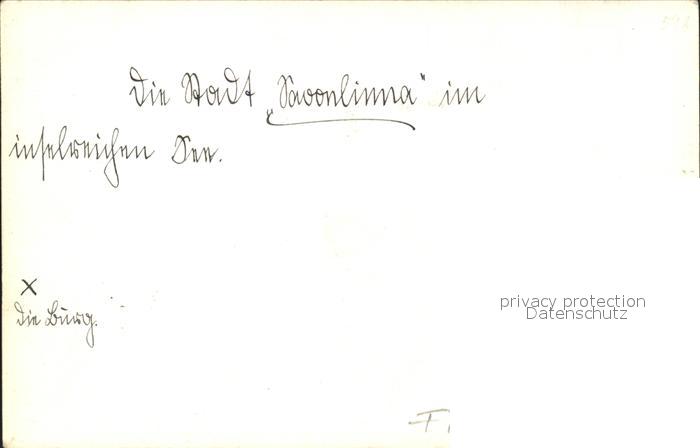 Die Stadt „Savonlinna“ im
inselreichen See.
x
die Burg.
privacy protection
Datenschutz
F.